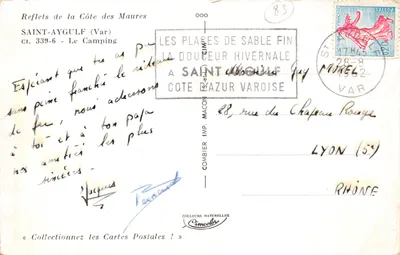 Reflets de la Côte des Maures
SAINT-AYGULF (Var)
Ct. 339-6 - Le Camping
83
Espérant que tu as pu
sans peine franchi le rideau
de fer, nous adressons
à toi et à ton papa
nos amitiés les plus
sincères.
Jacques
LES PLAGES DE SABLE FIN
LA DOUCEUR HIVERNALE
A SAINT-AYGULF
COTE D'AZUR VAROISE
17H45
26-8
VAR
Guy MOREL
28, rue du Chapeau Rouge
LYON (5e)
RHÔNE
COMBIER IMP. MACON
COULEURS NATURELLES
Cimcolor
« Collectionnez les Cartes Postales ! »